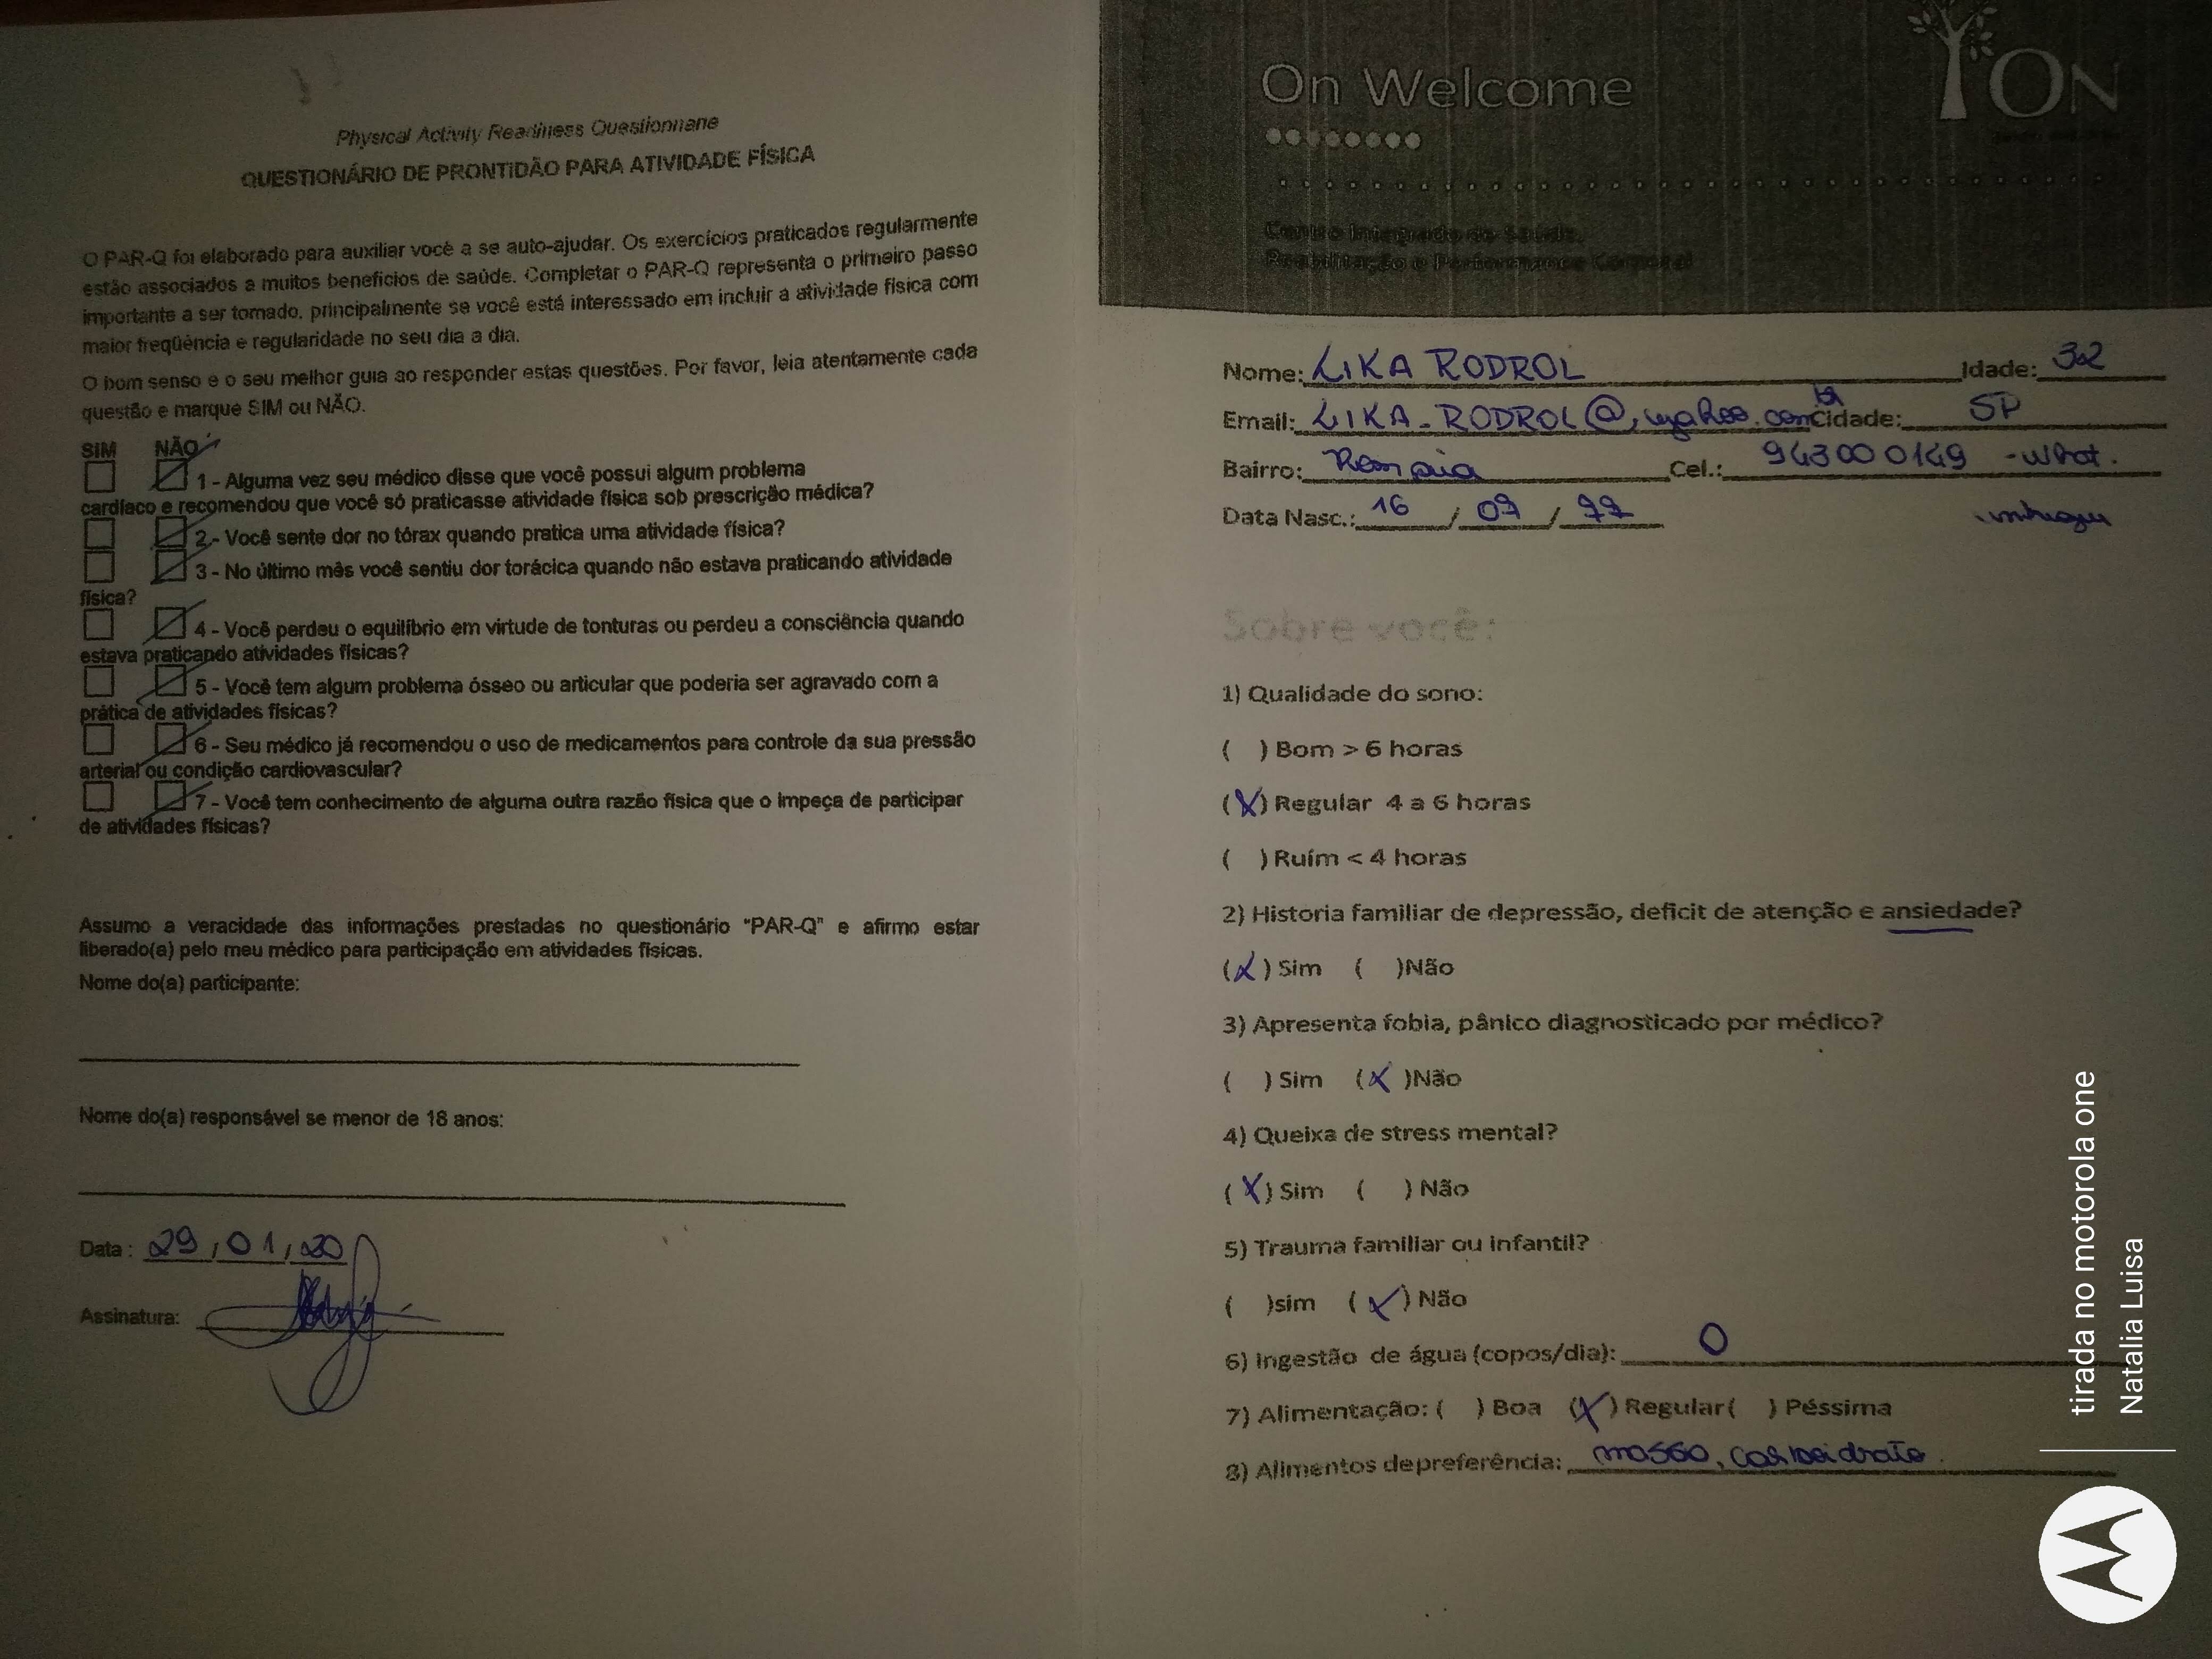 Physical Activity Readiness Questionnaire
QUESTIONÁRIO DE PRONTIDÃO PARA ATIVIDADE FÍSICA
O PAR-Q foi elaborado para auxiliar você a se auto-ajudar. Os exercícios praticados regularmente
estão associados a muitos benefícios de saúde. Completar o PAR-Q representa o primeiro passo
importante a ser tomado, principalmente se você está interessado em incluir a atividade física com
maior freqüência e regularidade no seu dia a dia.
O bom senso e o seu melhor guia ao responder estas questões. Por favor, leia atentamente cada
questão e marque SIM ou NÃO.
SIM NÃO
1 - Alguma vez seu médico disse que você possui algum problema
cardíaco e recomendou que você só praticasse atividade física sob prescrição médica?
2 - Você sente dor no tórax quando pratica uma atividade física?
3 - No último mês você sentiu dor torácica quando não estava praticando atividade
física?
4 - Você perdeu o equilíbrio em virtude de tonturas ou perdeu a consciência quando
estava praticando atividades físicas?
5 - Você tem algum problema ósseo ou articular que poderia ser agravado com a
prática de atividades físicas?
6 - Seu médico já recomendou o uso de medicamentos para controle da sua pressão
arterial ou condição cardiovascular?
7 - Você tem conhecimento de alguma outra razão física que o impeça de participar
de atividades físicas?
Assumo a veracidade das informações prestadas no questionário "PAR-Q" e afirmo estar
liberado(a) pelo meu médico para participação em atividades físicas.
Nome do(a) participante:
Nome do(a) responsável se menor de 18 anos:
Data : 29/01/20
Assinatura:
On Welcome
ON
Centro Integrado de Saúde,
Reabilitação e Performance Corporal
Nome: LIKA RODROL Idade: 32
Email: LIKA_RODROL@yahoo.com Cidade: SP
Bairro: Cel.: 943000149 - What.
Data Nasc.: 16 / 07 / 77
Sobre você:
1) Qualidade do sono:
( ) Bom > 6 horas
(X) Regular 4 a 6 horas
( ) Ruím < 4 horas
2) Historia familiar de depressão, deficit de atenção e ansiedade?
(X) Sim ( )Não
3) Apresenta fobia, pânico diagnosticado por médico?
( ) Sim (X )Não
4) Queixa de stress mental?
(X) Sim ( ) Não
5) Trauma familiar ou infantil?
( )sim (X) Não
6) Ingestão de água (copos/dia): 0
7) Alimentação: ( ) Boa (X) Regular ( ) Péssima
8) Alimentos de preferência: massa, carboidrato.
tirada no motorola one
Natalia Luisa